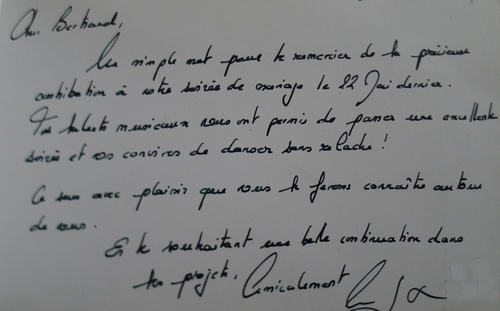 Cher Bertrand,
Un simple mot pour te remercier de ta précieuse
contribution à notre soirée de mariage le 22 Mai dernier.
Tes talents musicaux nous ont permis de passer une excellente
soirée et nos convives de danser sans relache !
Ce sera avec plaisir que nous te ferons connaître autour
de nous.
En te souhaitant une belle continuation dans
tes projets. Amicalement